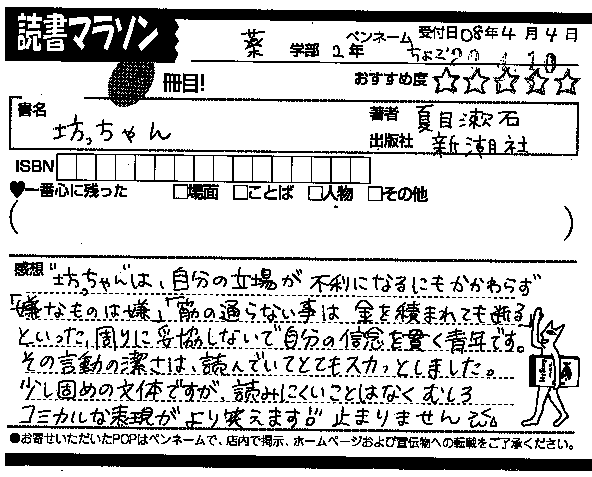 読書マラソン
薬 学部 2年 ペンネーム 受付日08年4月4日
冊目! おすすめ度 ☆☆☆☆☆
書名 坊っちゃん
著者 夏目漱石
出版社 新潮社
ISBN
♥一番心に残った □場面 □ことば □人物 □その他
( )
感想 "坊っちゃん"は、自分の立場が不利になるにもかかわらず
「嫌なものは嫌」「筋の通らない事は金を積まれても断る」
といった、周りに妥協しないで自分の信念を貫く青年です。
その言動の潔さは、読んでいてとてもスカッとしました。
少し固めの文体ですが、読みにくいことはなくむしろ
コミカルな表現がより笑えます!! 止まりません
●お寄せいただいたPOPはペンネームで、店内で掲示、ホームページおよび宣伝物への転載をご了承ください。